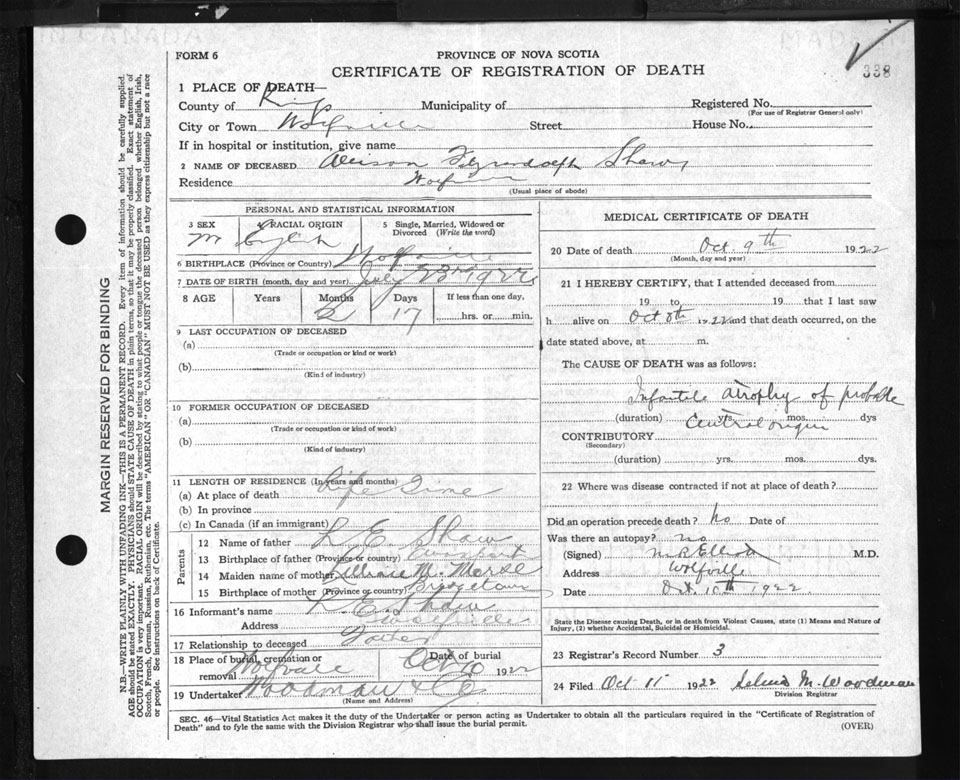 FORM 6
PROVINCE OF NOVA SCOTIA
CERTIFICATE OF REGISTRATION OF DEATH
338
1 PLACE OF DEATH—
County of Kings Municipality of Registered No.
(For use of Registrar General only)
City or Town Wolfville Street House No.
If in hospital or institution, give name
2 NAME OF DECEASED Shaw
Residence Wolfville
(Usual place of abode)
PERSONAL AND STATISTICAL INFORMATION
3 SEX 4 RACIAL ORIGIN 5 Single, Married, Widowed or
Divorced (Write the word)
m English
6 BIRTHPLACE (Province or Country) Wolfville
7 DATE OF BIRTH (month, day and year) July 23rd 1922
8 AGE Years Months Days If less than one day,
2 17 hrs. or min.
9 LAST OCCUPATION OF DECEASED
(a)
(Trade or occupation or kind or work)
(b)
(Kind of industry)
10 FORMER OCCUPATION OF DECEASED
(a)
(Trade or occupation or kind of work)
(b)
(Kind of industry)
11 LENGTH OF RESIDENCE (In years and months)
(a) At place of death Life Time
(b) In province
(c) In Canada (if an immigrant)
Parents
12 Name of father L. E. Shaw
13 Birthplace of father (Province or country)
14 Maiden name of mother Lillian M. Morse
15 Birthplace of mother (Province or country)
16 Informant's name L. E. Shaw
Address Wolfville
17 Relationship to deceased Father
18 Place of burial, cremation or removal Date of burial
Oct 10 1922
19 Undertaker Woodman & Co
(Name and Address)
MEDICAL CERTIFICATE OF DEATH
20 Date of death Oct. 9th 1922
(Month, day and year)
21 I HEREBY CERTIFY, that I attended deceased from
19 to 19 that I last saw
h alive on Oct 8th 1922 and that death occurred, on the
date stated above, at m.
The CAUSE OF DEATH was as follows:
Infantile atrophy of probable
(duration) yrs. mos. dys
Central origin
CONTRIBUTORY
(Secondary)
(duration) yrs. mos. dys.
22 Where was disease contracted if not at place of death?
Did an operation precede death? No Date of
Was there an autopsy? no
(Signed) M. R. Elliott M.D.
Address Wolfville
Date Oct. 10th 1922
State the Disease causing Death, or in death from Violent Causes, state (1) Means and Nature of
Injury, (2) whether Accidental, Suicidal or Homicidal.
23 Registrar's Record Number 3
24 Filed Oct 11 1922 M. Woodman
Division Registrar
SEC. 46—Vital Statistics Act makes it the duty of the Undertaker or person acting as Undertaker to obtain all the particulars required in the "Certificate of Registration of
Death" and to fyle the same with the Division Registrar who shall issue the burial permit.
(OVER)
MARGIN RESERVED FOR BINDING
N.B.—WRITE PLAINLY WITH UNFADING INK—THIS IS A PERMANENT RECORD. Every item of information should be carefully supplied.
AGE should be stated EXACTLY. PHYSICIANS should STATE CAUSE OF DEATH in plain terms, so that it may be properly classified. Exact statement of
OCCUPATION is very important. RACIAL ORIGIN will be described by stating to what people or tongue the deceased person belonged, whether English, Irish,
Scotch, French, German, Russian, Ruthenian, etc. The terms "AMERICAN" OR "CANADIAN" MUST NOT BE USED as they express citizenship but not a race
or people. See instructions on back of Certificate.